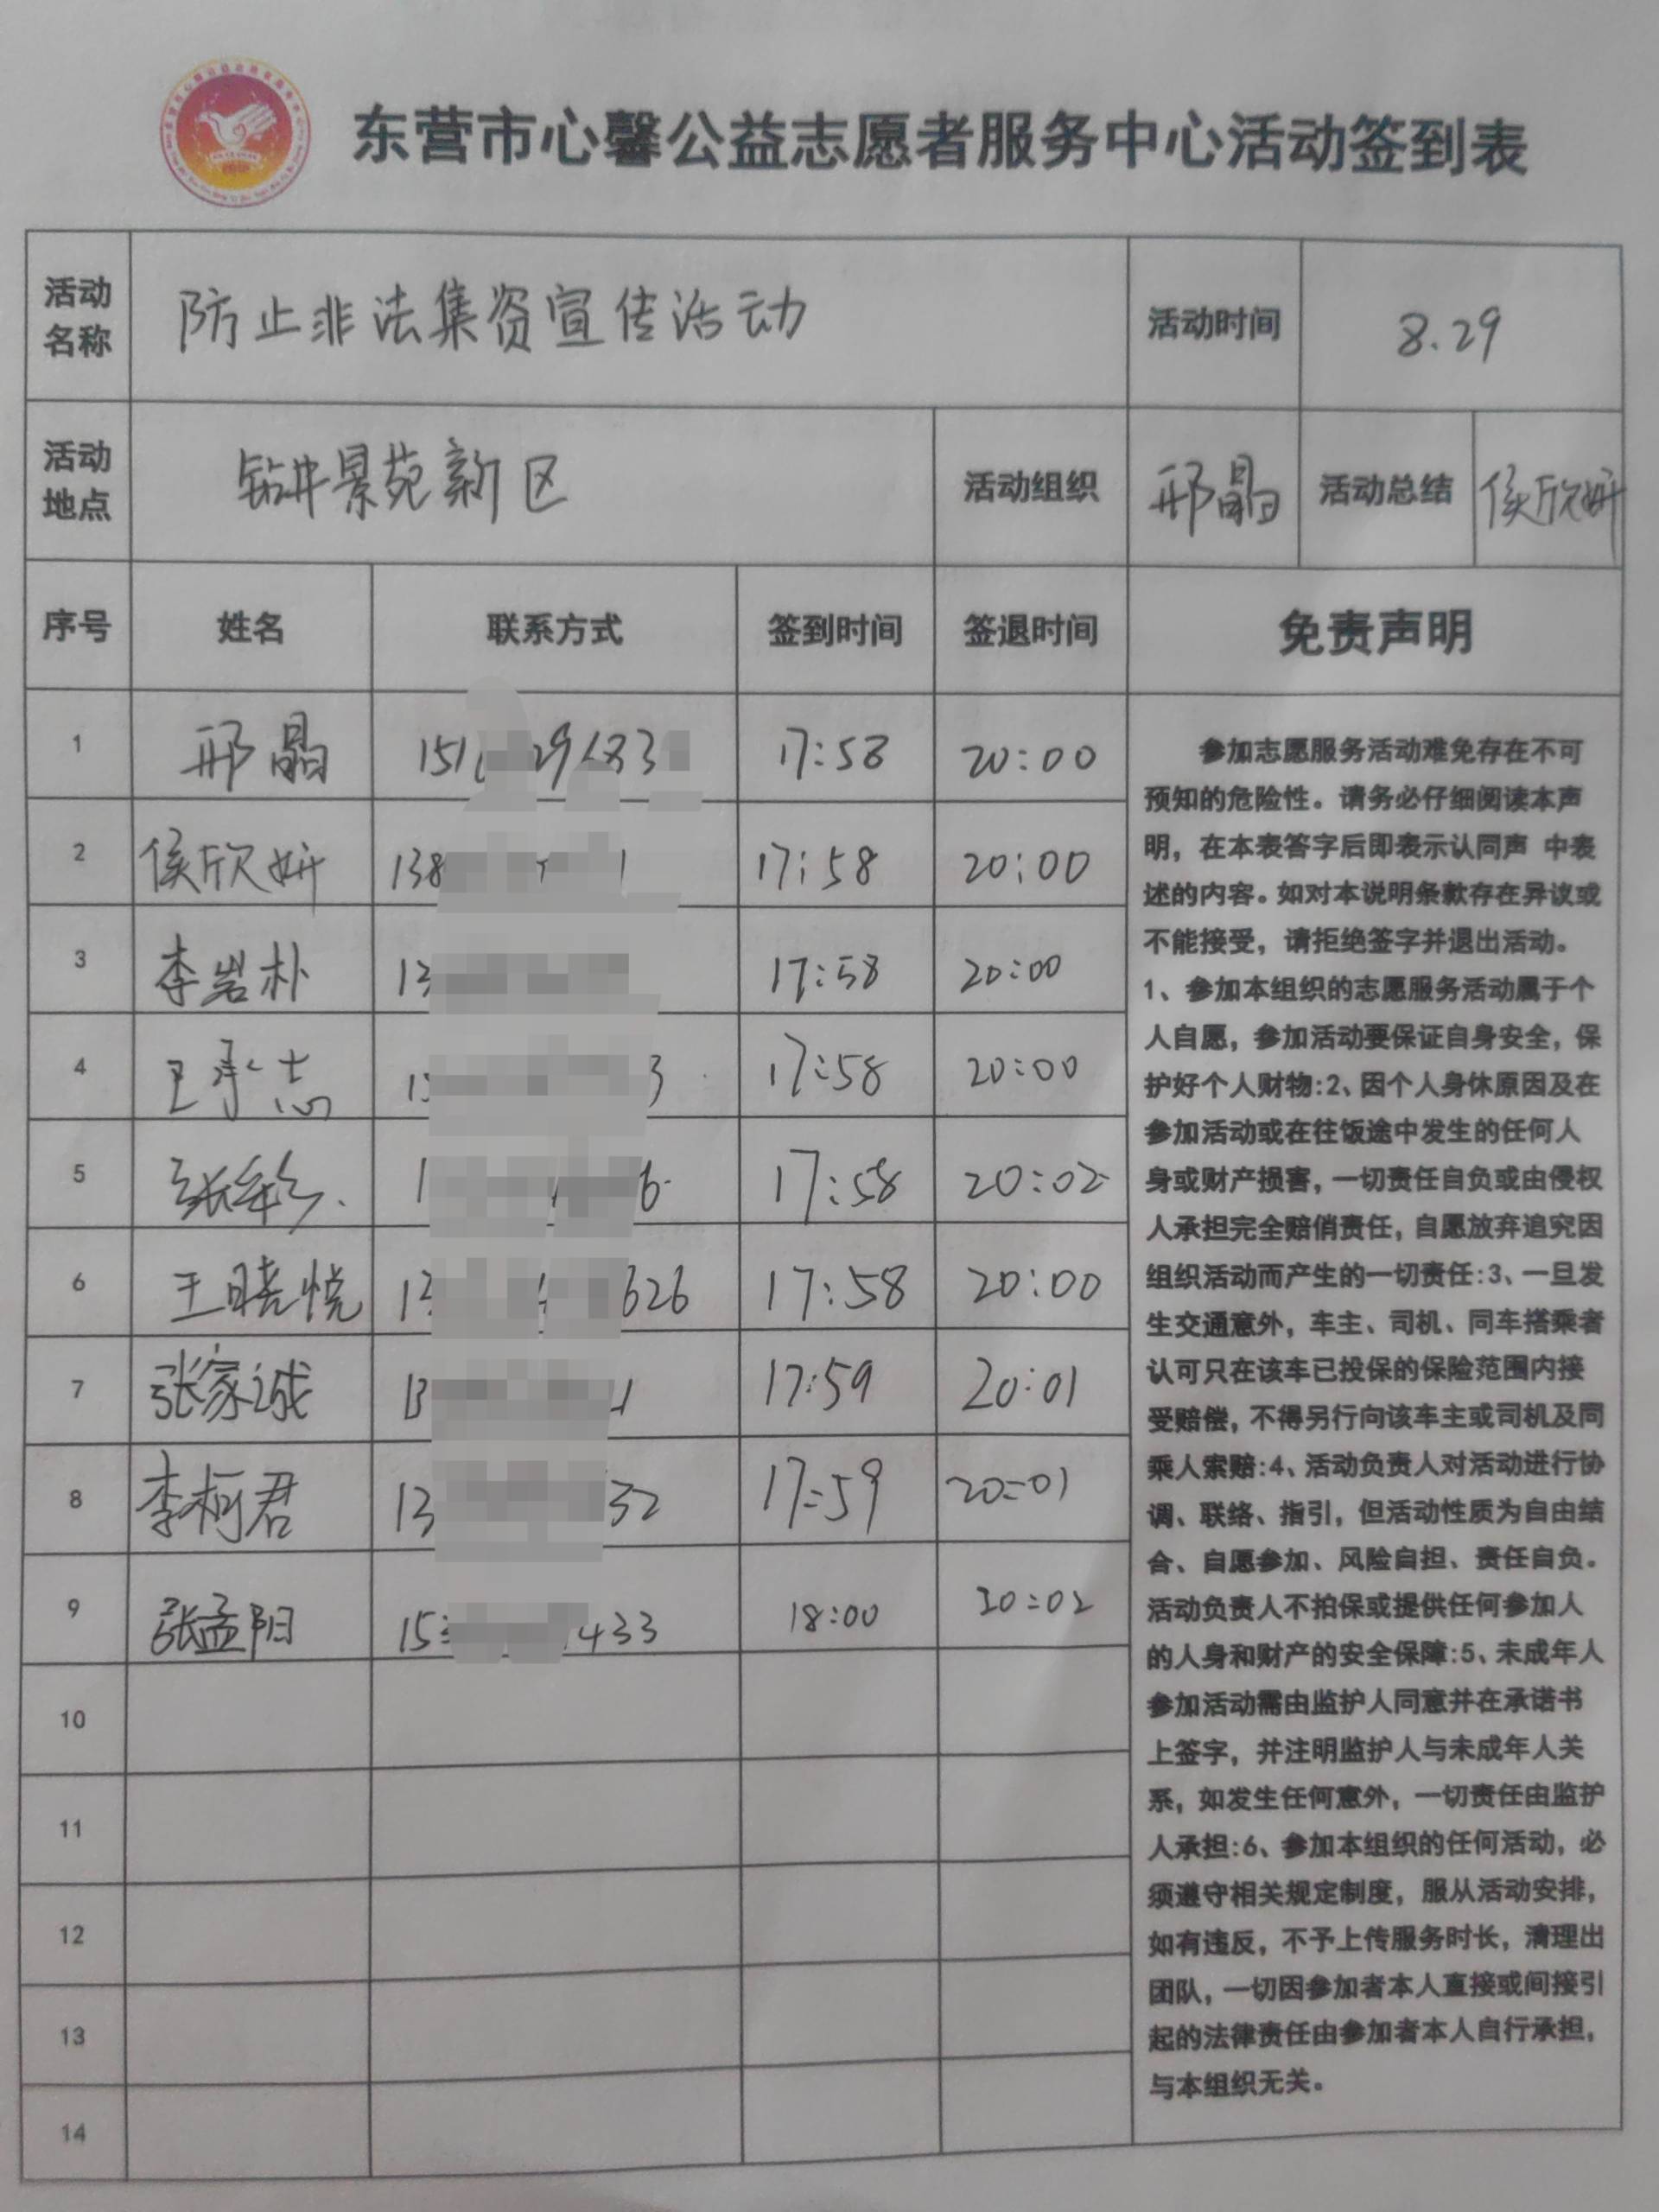 东营市心馨公益志愿者服务中心活动签到表
活动名称 防止非法集资宣传活动 活动时间 8.29
活动地点 钻井景苑新区 活动组织 邢晶 活动总结 侯欣妍
序号 姓名 联系方式 签到时间 签退时间 免责声明
1 邢晶 17:58 20:00
2 侯欣妍 138 17:58 20:00
3 李岩朴 13 17:58 20:00
4 王承志 3 17:58 20:00
5 张彩 1 6 17:58 20:02
6 王晓悦 13 626 17:58 20:00
7 张家诚 13 1 17:59 20:01
8 李柯君 13 32 17:59 20:01
9 张孟阳 15 433 18:00 20:02
10
11
12
13
14
参加志愿服务活动难免存在不可
预知的危险性。请务必仔细阅读本声
明，在本表答字后即表示认同声 中表
述的内容。如对本说明条款存在异议或
不能接受，请拒绝签字并退出活动。
1、参加本组织的志愿服务活动属于个
人自愿，参加活动要保证自身安全，保
护好个人财物:2、因个人身休原因及在
参加活动或在往饭途中发生的任何人
身或财产损害，一切责任自负或由侵权
人承担完全赔俏责任，自愿放弃追究因
组织活动而产生的一切责任:3、一旦发
生交通意外，车主、司机、同车搭乘者
认可只在该车已投保的保险范围内接
受赔偿，不得另行向该车主或司机及同
乘人索赔:4、活动负责人对活动进行协
调、联络、指引，但活动性质为自由结
合、自愿参加、风险自担、责任自负。
活动负责人不拍保或提供任何参加人
的人身和财产的安全保障:5、未成年人
参加活动需由监护人同意并在承诺书
上签字，并注明监护人与未成年人关
系，如发生任何意外，一切责任由监护
人承担:6、参加本组织的任何活动，必
须遵守相关规定制度，服从活动安排，
如有违反，不予上传服务时长，清理出
团队，一切因参加者本人直接或间接引
起的法律责任由参加者本人自行承担，
与本组织无关。